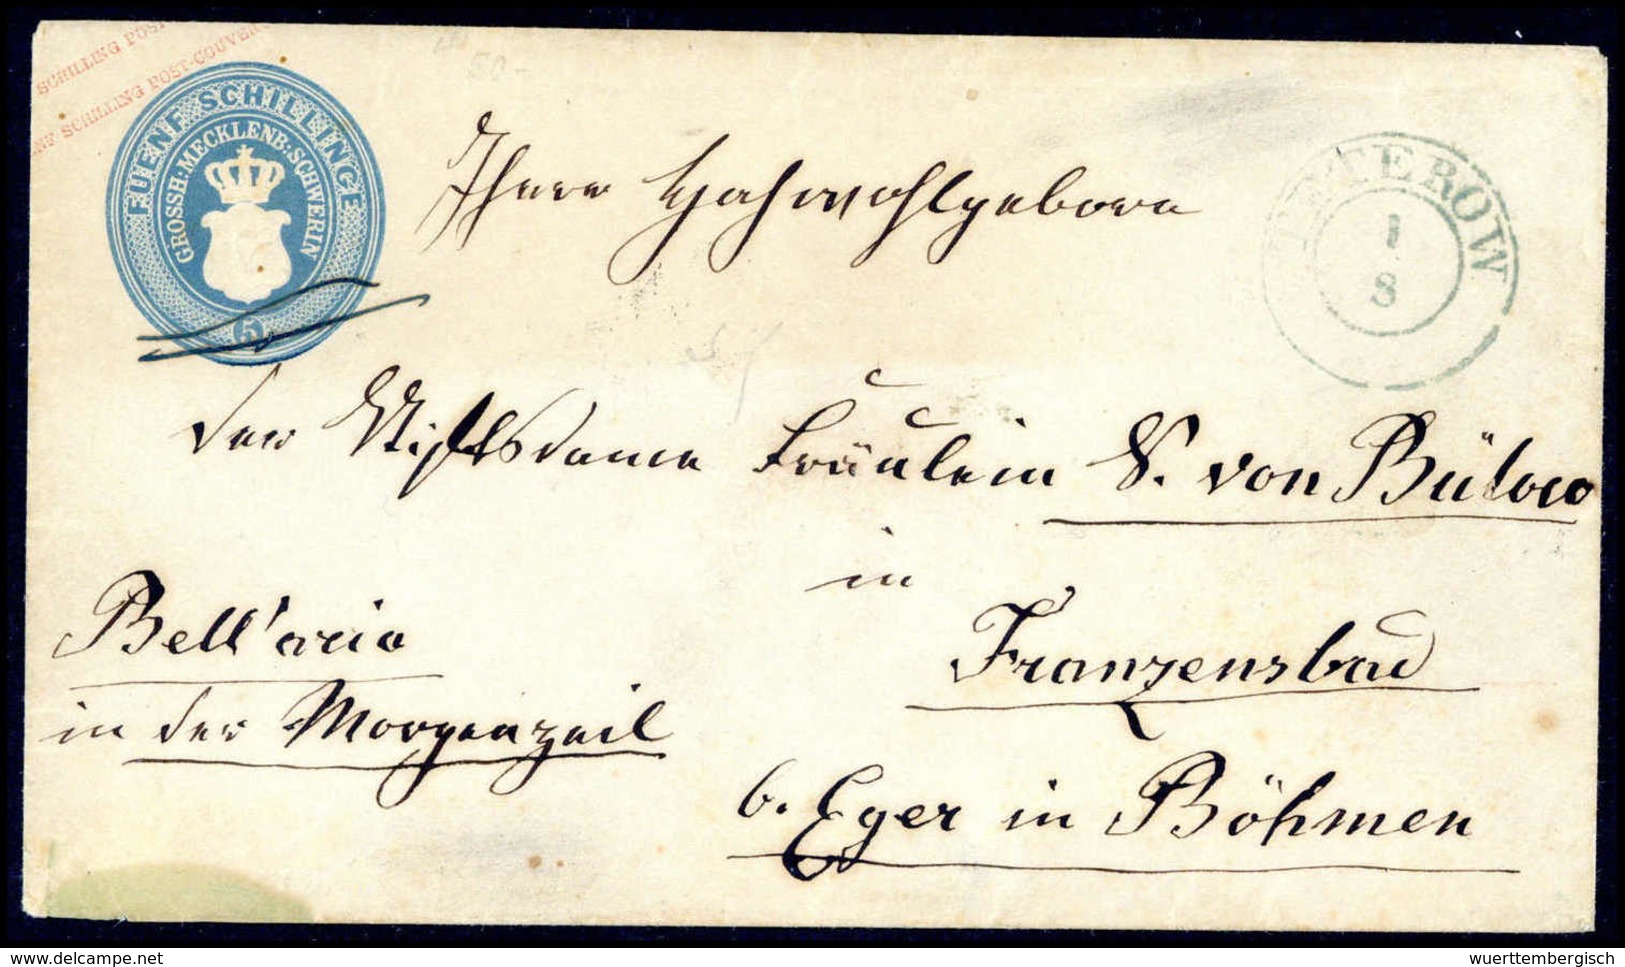 SCHILLING POST
NF SCHILLING POST-COUVER
FUENF SCHILLINGE
GROSSH: MECKLENB: SCHWERIN
5
TETEROW
1
8
Ihrer Hochwohlgeboren
der Stiftsdame Fräulein S. von Bülow
in
Franzensbad
b. Eger in Böhmen
Bell'aria
in der Morgenzeil
delcampe.net
wuerttembergisch